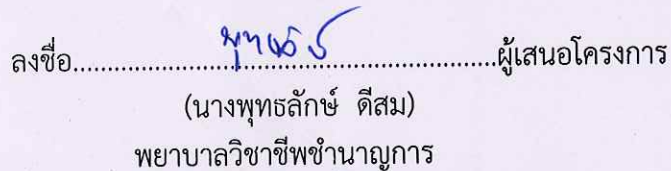 ลงชื่อ................................................................ผู้เสนอโครงการ
(นางพุทธลักษ์ ดีสม)
พยาบาลวิชาชีพชำนาญการ